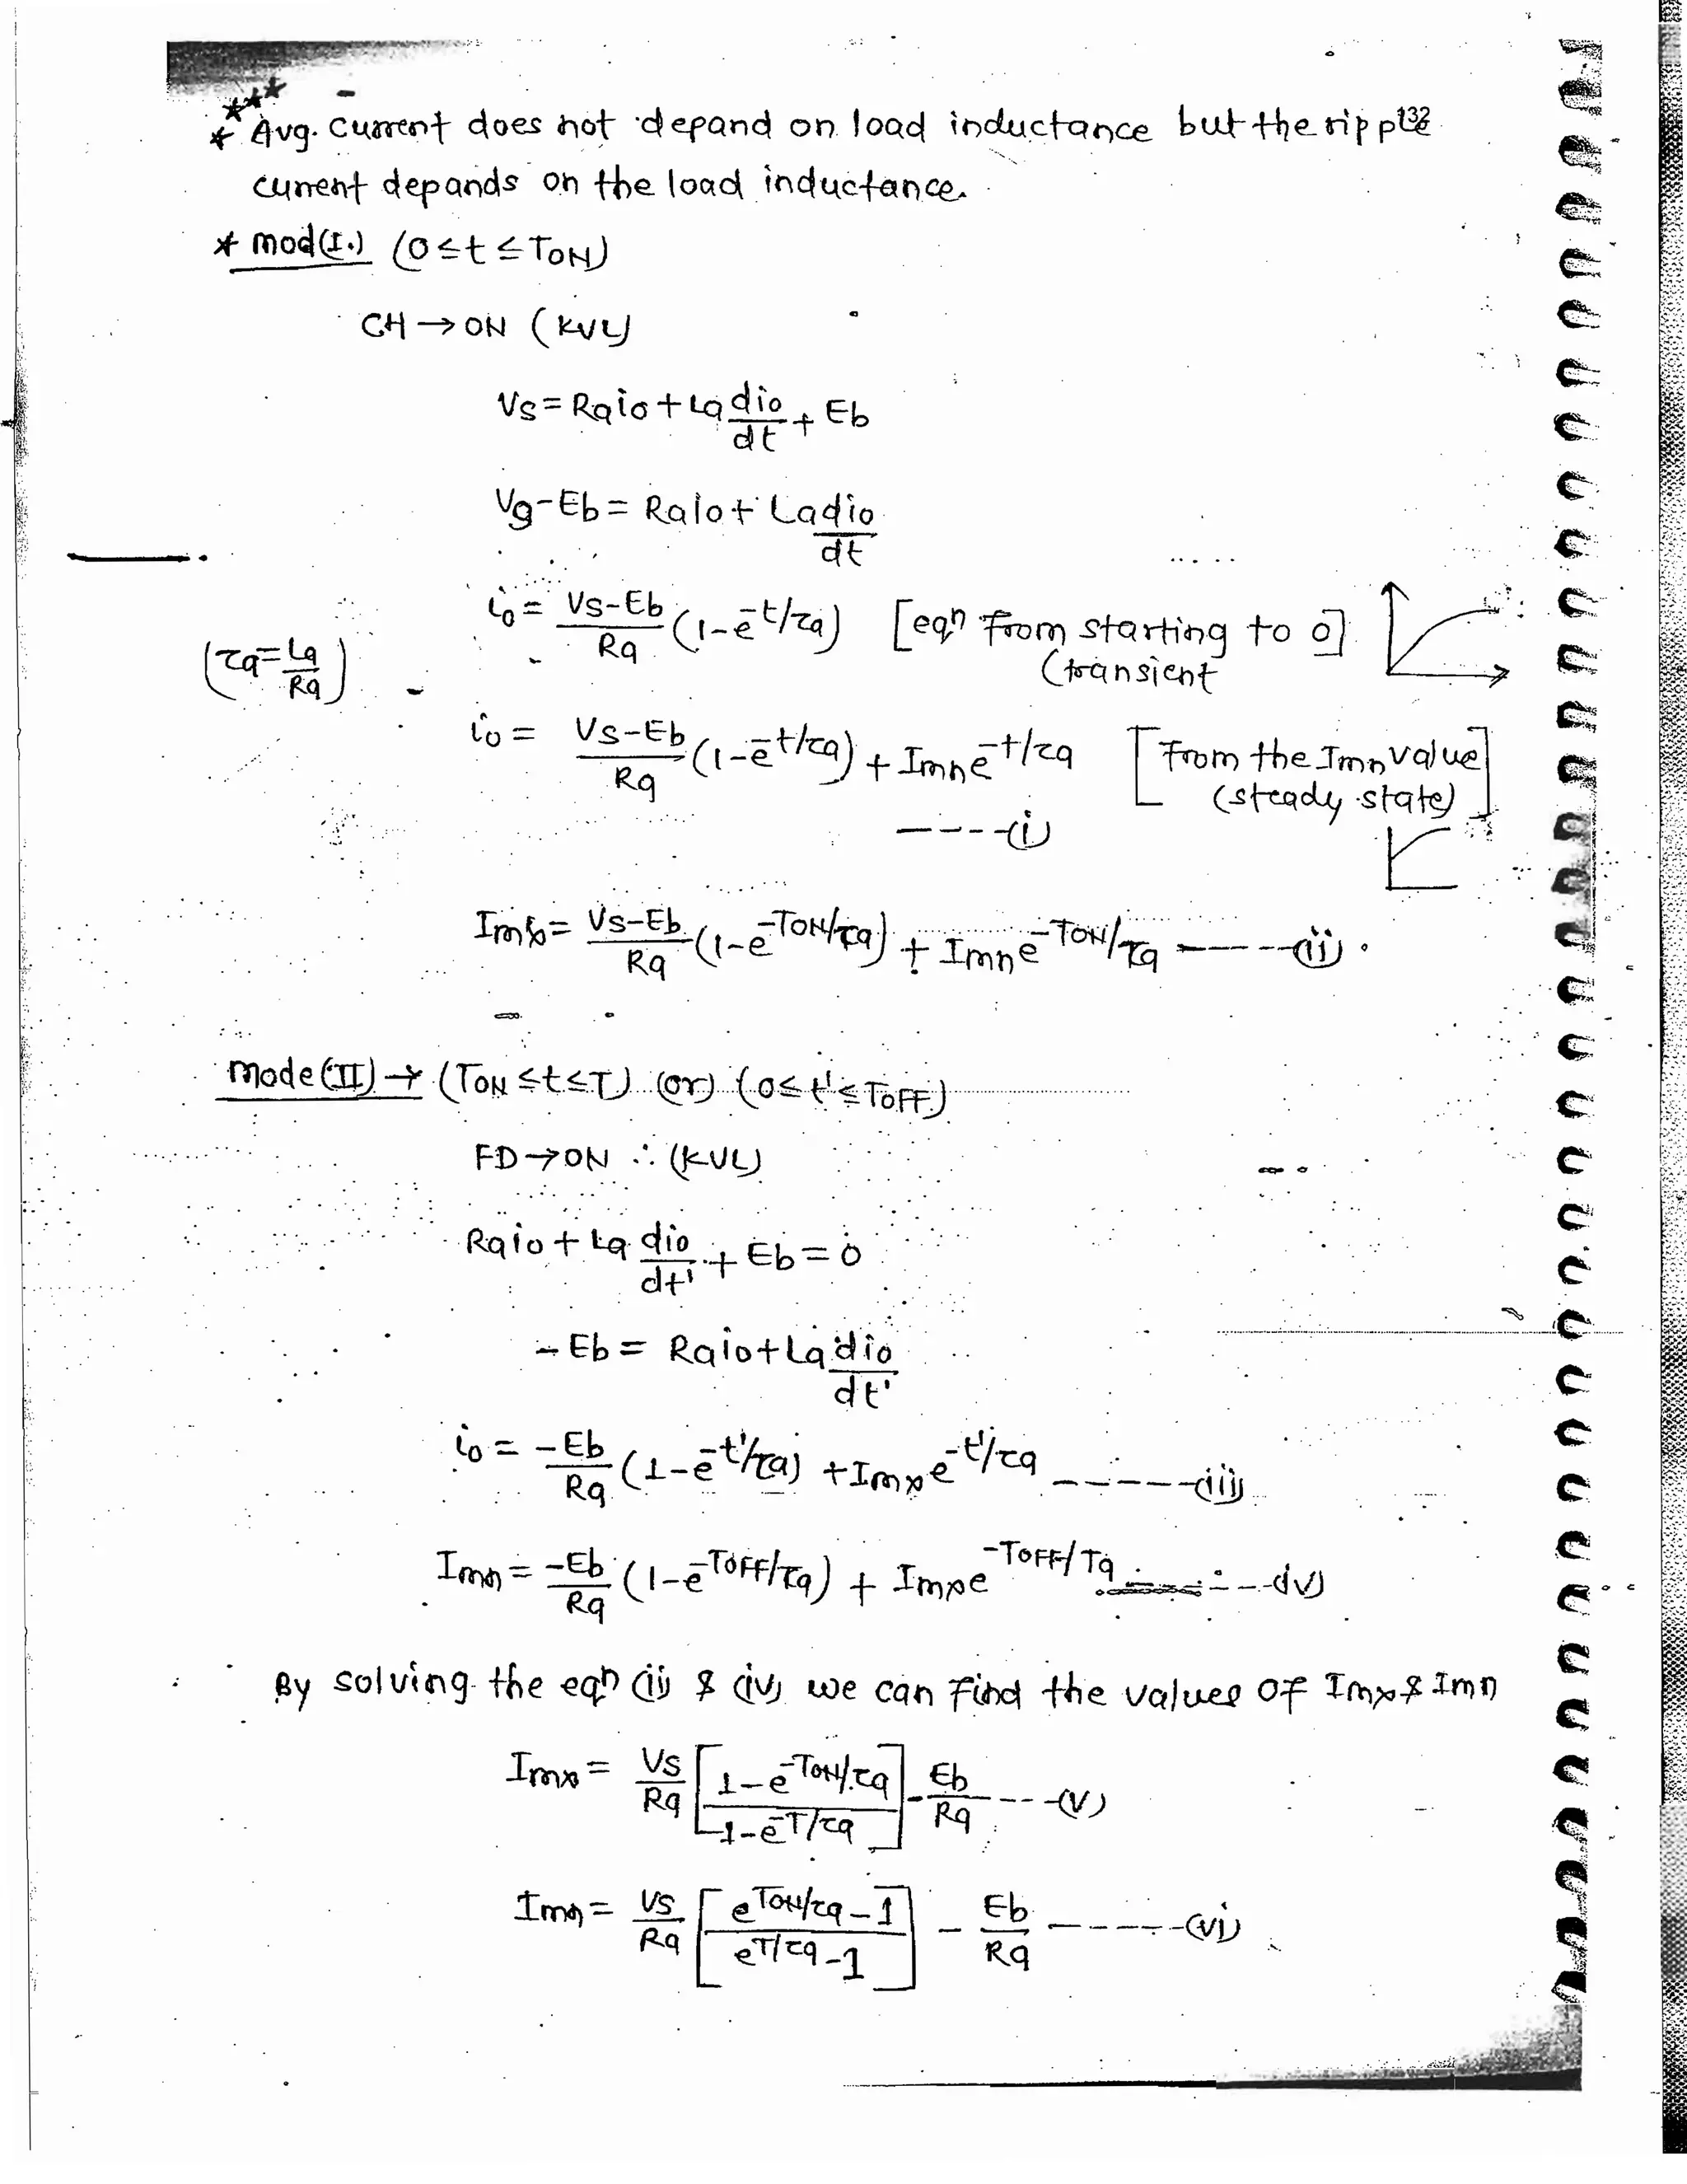 132
* Avg. current does not depand on load inductance but the ripple
current depands on the load inductance.
* mod(I.) (0 ≤ t ≤ TON)
CH → ON (KVL)
Vs = Raio + La dio/dt + Eb
Vg - Eb = Raio + La dio/dt
io = (Vs-Eb)/Ra (1-e^-t/τa) [eqn from starting to 0]
(transient
(τa = La/Ra)
io = (Vs-Eb)/Ra (1-e^-t/τa) + Imn e^-t/τa [From the Imn value]
(steady state)
----(i)
Imx = (Vs-Eb)/Ra (1-e^-TON/τa) + Imn e^-TON/τa -----(ii)
Mode(II) → (TON ≤ t ≤ T) (or) (0 ≤ t' ≤ TOFF)
FD → ON ∴ (KVL)
Raio + La dio/dt' + Eb = 0
- Eb = Raio + La dio/dt'
io = -Eb/Ra (1-e^-t'/τa) + Imx e^-t'/τa -----(iii)
Imn = -Eb/Ra (1-e^-TOFF/τa) + Imx e^-TOFF/τa -----(iv)
By solving the eqn (ii) & (iv) we can find the values of Imx & Imn
Imx = Vs/Ra [(1-e^-TON/τa)/(1-e^-T/τa)] - Eb/Ra ---(v)
Imn = Vs/Ra [(e^TON/τa - 1)/(e^T/τa - 1)] - Eb/Ra -----(vi)